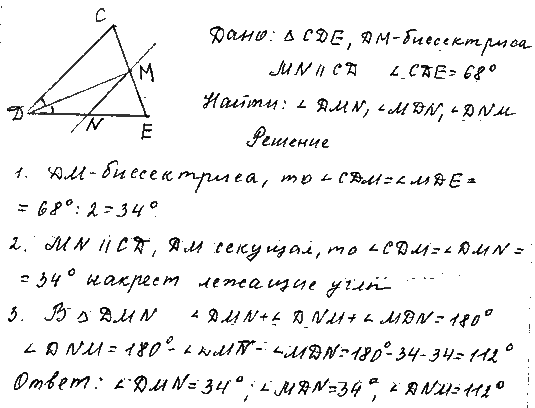 C
M
D
N
E
Дано: △CDE, DM-биссектриса
MN || CD ∠CDE = 68°
Найти: ∠DMN, ∠MDN, ∠DNM
Решение
1. DM-биссектриса, то ∠CDM=∠MDE=
= 68°:2=34°
2. MN || CD, DM секущая, то ∠CDM=∠DMN=
= 34° накрест лежащие углы
3. В △DMN ∠DMN+∠DNM+∠MDN=180°
∠DNM=180°-∠DMN-∠MDN=180°-34-34=112°
Ответ: ∠DMN=34°; ∠MDN=34°, ∠DNM=112°